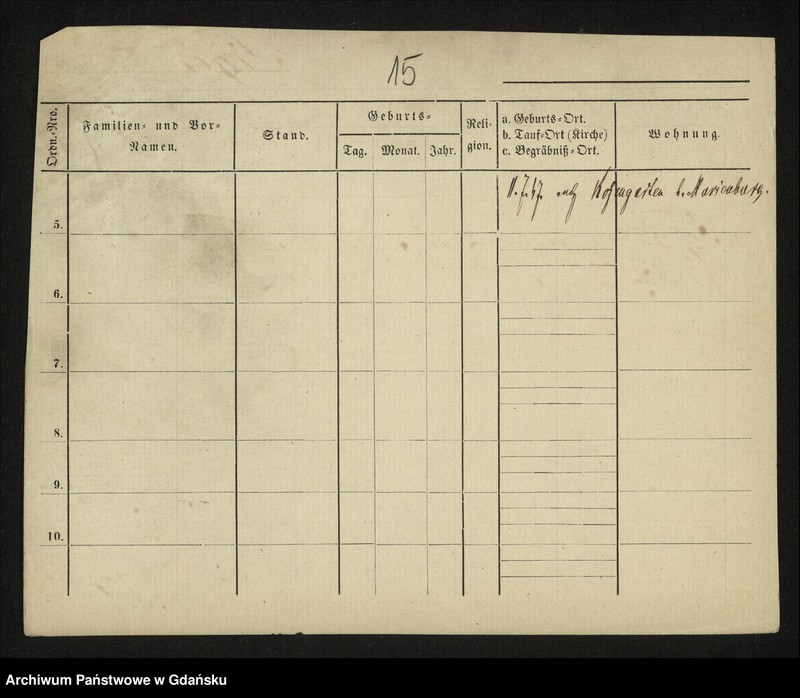 15
Ordn.-Nro.
Familien- und Vor-
Namen.
Stand.
Geburts-
Tag. Monat. Jahr.
Reli-
gion.
a. Geburts-Ort.
b. Tauf-Ort (Kirche)
c. Begräbniß-Ort.
Wohnung.
Marienburg.
5.
6.
7.
8.
9.
10.
Archiwum Państwowe w Gdańsku